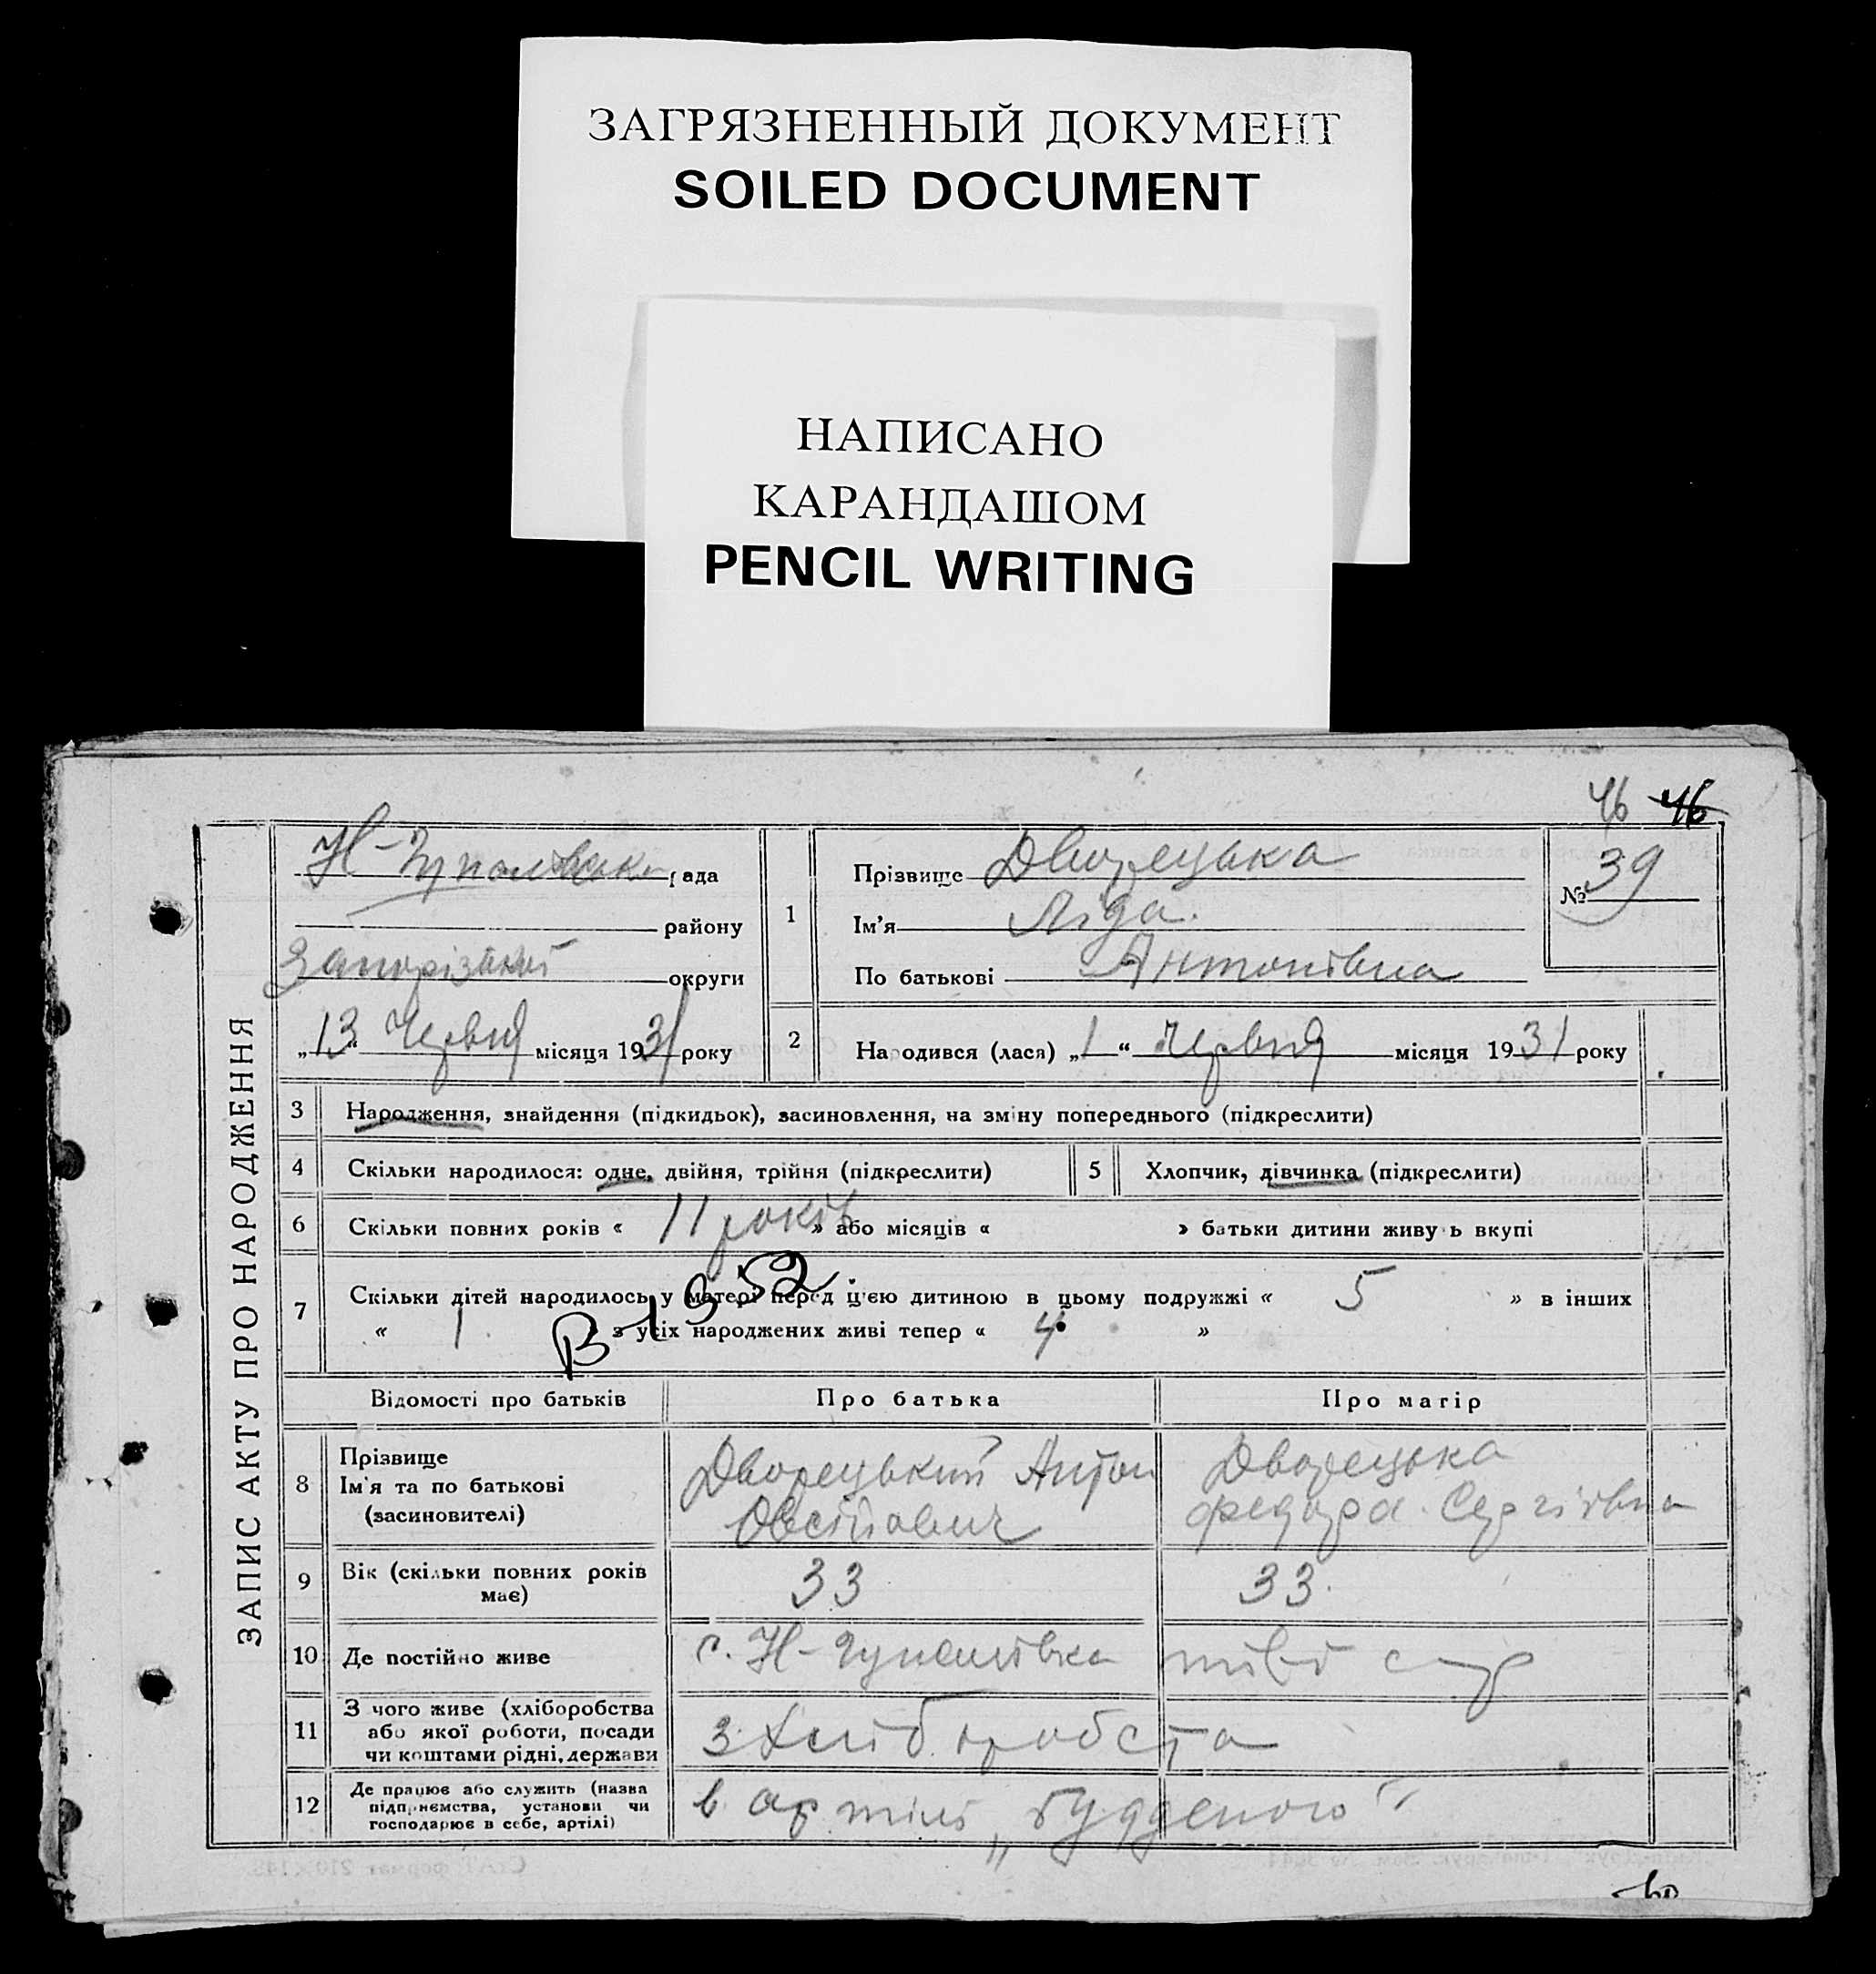 ЗАГРЯЗНЕННЫЙ ДОКУМЕНТ
SOILED DOCUMENT
НАПИСАНО
КАРАНДАШОМ
PENCIL WRITING
46 46
ЗАПИС АКТУ ПРО НАРОДЖЕННЯ
рада
району
Запорізької округи
„13“ Червня місяця 1931 року
1
Прізвище Дворецька
Ім'я Ліда.
По батькові Антонівна
№ 39
2 Народився (лася) „1“ Червня місяця 1931 року
3 Народження, знайдення (підкидьок), засиновлення, на зміну попереднього (підкреслити)
4 Скільки народилося: одне, двійня, трійня (підкреслити) 5 Хлопчик, дівчинка (підкреслити)
6 Скільки повних років « 11 років » або місяців « » батьки дитини живуть вкупі
7 Скільки дітей народилось у матері перед цією дитиною в цьому подружжі « 5 » в інших
« 1 з усіх народжених живі тепер « 4 »
В-1952
Відомості про батьків Про батька Про матір
8 Прізвище
Ім'я та по батькові
(засиновителі)
Дворецький Антон
Дворецька
Федора Сергіївна
9 Вік (скільки повних років
має)
33 33
10 Де постійно живе с.
11 З чого живе (хліборобства
або якої роботи, посади
чи коштами рідні, держави
з хліборобста
12 Де працює або служить (назва
підприємства, установи чи
господарює в себе, артілі)
в артілі „Будденого“